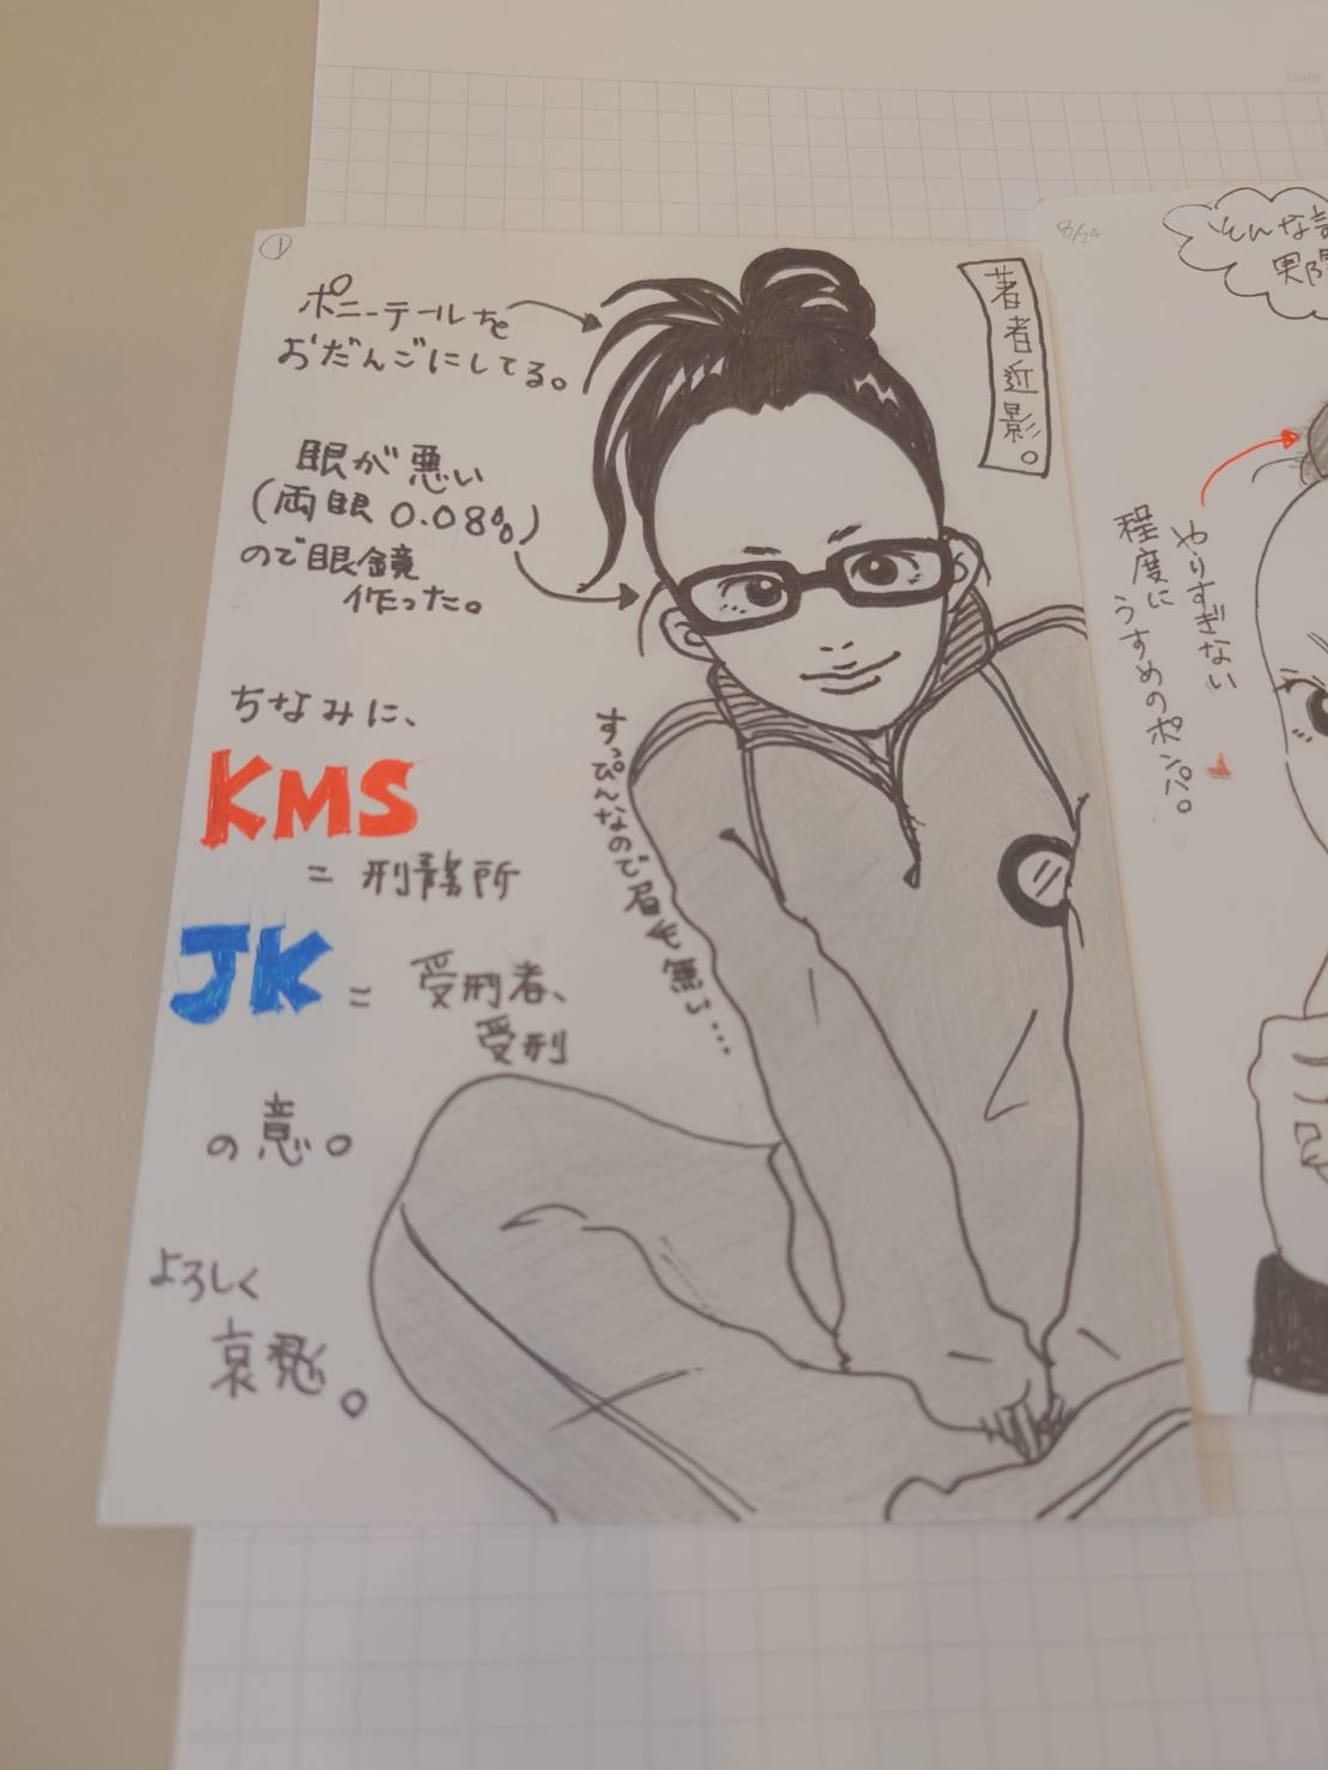 ①
著者近影。
ポニーテールを
おだんごにしてる。
眼が悪い
(両眼 0.08%)
ので眼鏡
作った。
すっぴんなので眉も無い…
ちなみに、
KMS
= 刑務所
JK = 受刑者、
受刑
の意。
よろしく
哀愁。
8/24
そんな
実際
やりすぎない
程度に
うすめのポンパ。
Date